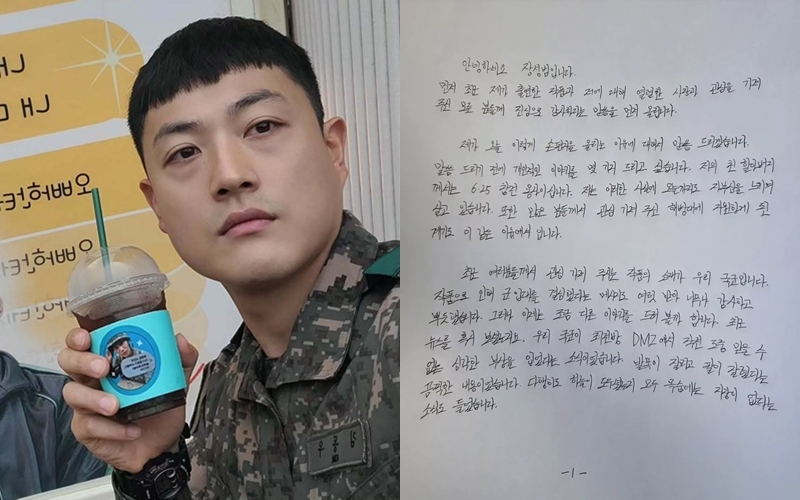 오빠한테
오빠한테
안녕하세요 장성범입니다.
먼저 최근 제가 출연한 작품과 저에 대해 열렬한 사랑과 관심을 가져
주신 모든 분들께 진심으로 감사하다는 말씀을 먼저 올립니다.
제가 오늘 이렇게 손편지를 올리는 이유에 대해서 말씀 드리겠습니다.
말씀 드리기 전에 개인적인 이야기를 몇 가지 드리고 싶습니다. 저의 친 할아버지
께서는 6.25 참전 용사이십니다. 저는 이러한 사실에 오늘까지도 자부심을 느끼며
살고 있습니다. 또한 많은 분들께서 관심 가져 주신 해병대에 지원하게 된
계기도 이 같은 이유에서 입니다.
최근 여러분들께서 관심 가져 주셨던 작품의 소재가 우리 국군입니다.
작품으로 인해 군 입대를 결심했다는 메시지도 여럿 받아 너무나 감사하고
뿌듯했습니다. 그러나 이제는 조금 다른 이야기를 드려 볼까 합니다. 최근
뉴스를 혹시 보셨는지요. 우리 국군이 최전방 DMZ에서 작전 도중 믿을 수
없는 심각한 부상을 입었다는 소식이었습니다. 발목이 잘리고 팔이 잘렸다는
끔찍한 내용이었습니다. 다행인지 하늘이 도우셨는지 모두 목숨에는 지장이 없다는
소식도 들었습니다.
-1-